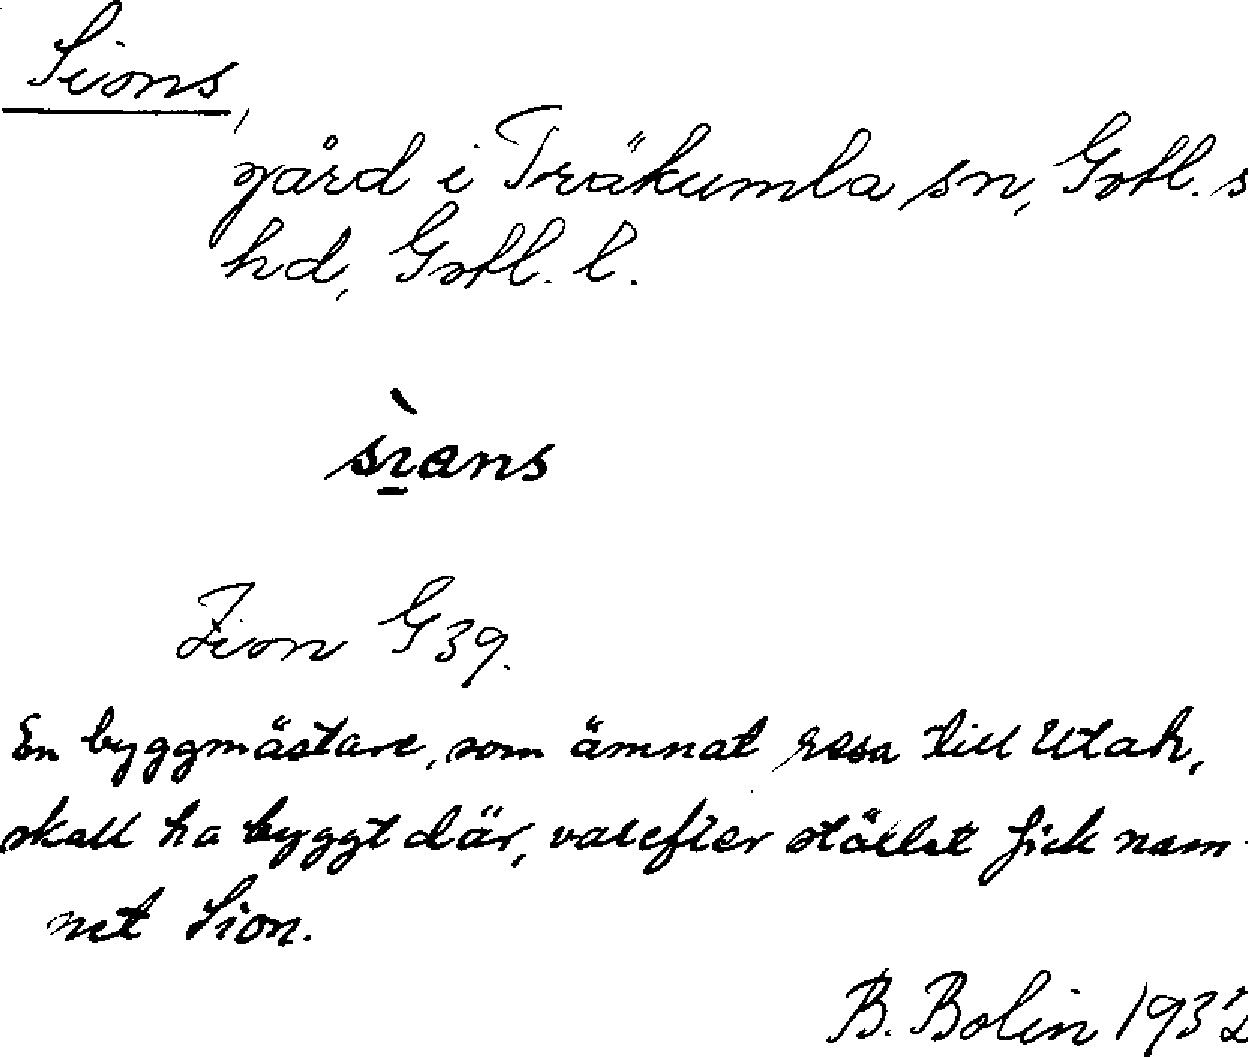 Sions,
gård i Träkumla sn, Gotl. s
hd, Gotl. l.
Zion G 39.
En byggmästare, som ämnat resa till Utah,
skall ha byggt där, varefter stället fick nam-
net Sion.
B. Bolin 1932